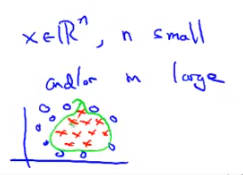 x∈ℝⁿ, n small
and/or m large